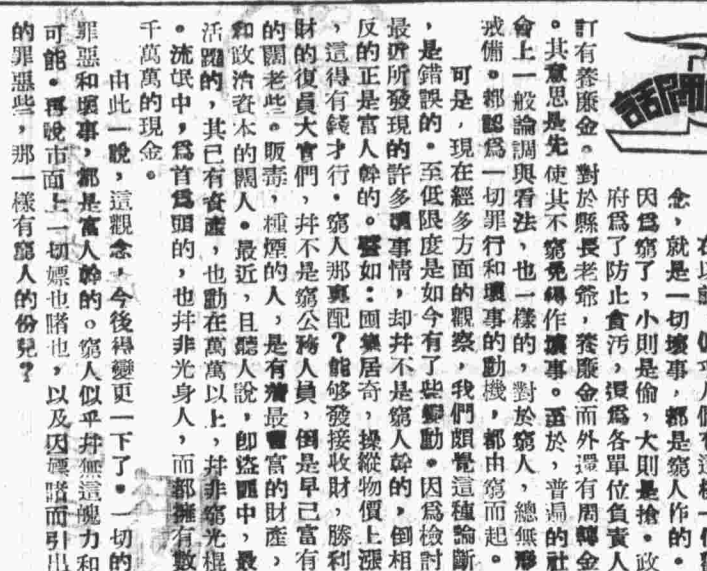 閒話
在以前，似乎人們有這樣一個觀
念，就是一切壞事，都是窮人作的。
因爲窮了，小則是偷，大則是搶。政
府爲了防止貪污，還爲各單位負責人
訂有養廉金。對於縣長老爺，養廉金而外還有周轉金
。其意思是先使其不窮免得作壞事。至於，普遍的社
會上一般論調與看法，也一樣的，對於窮人，總無形
戒備。都認爲一切罪行和壞事的動機，都由窮而起。
可是，現在經多方面的觀察，我們頗覺這種論斷
，是錯誤的。至低限度是如今有了些變動。因爲檢討
最近所發現的許多壞事情，却并不是窮人幹的，倒相
反的正是富人幹的。譬如：囤集居奇，操縱物價上漲
，這得有錢才行。窮人那裏配？能够發接收財，勝利
財的復員大官們，幷不是窮公務人員，倒是早已富有
的闊老些。販毒，種煙的人，是有着最豐富的財產，
和政治資本的闊人。最近，且聽人說，卽盜匪中，最
活躍的，其已有資產，也動在萬萬以上，幷非窮光棍
。流氓中，爲首爲頭的，也幷非光身人，而都擁有數
千萬萬的現金。
由此一說，這觀念，今後得變更一下了。一切的
罪惡和壞事，都是富人幹的。窮人似乎幷無這魄力和
可能。再說市面上一切嫖也賭也，以及因嫖賭而引出
的罪惡些，那一樣有窮人的份兒？